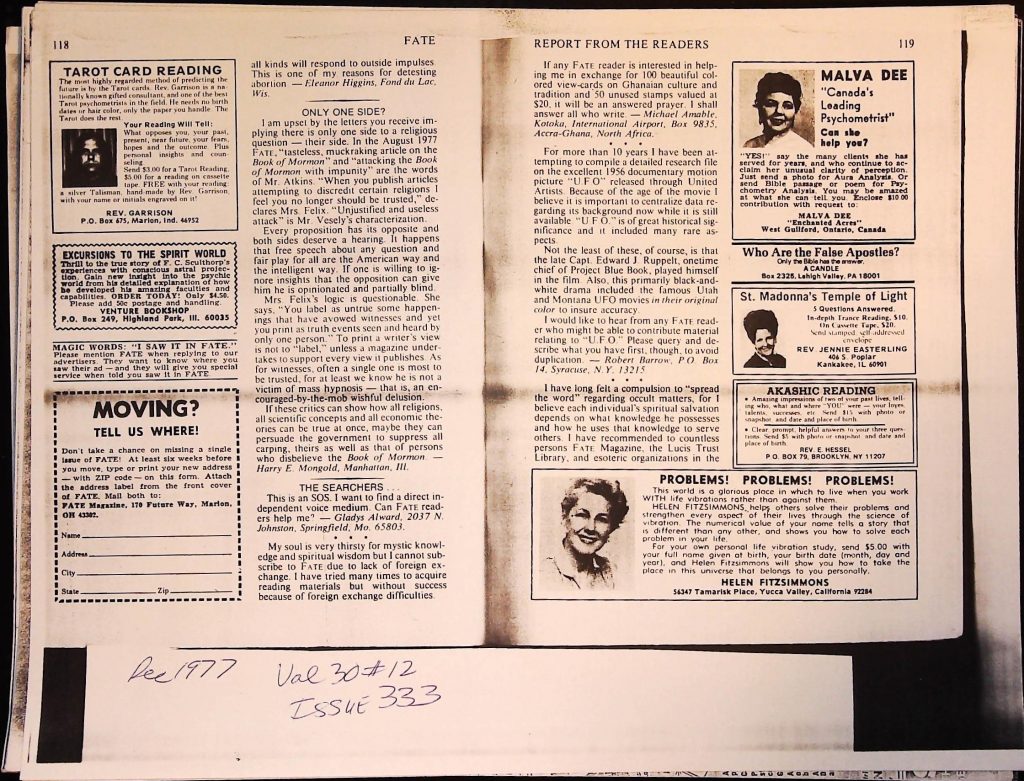 118
FATE
TAROT CARD READING
The most highly regarded method of predicting the
future is by the Tarot cards. Rev. Garrison is a na-
tionally known gifted consultant, and one of the best
Tarot psychometrists in the field. He needs no birth
dates or hair color, only the paper you handle. The
Tarot does the rest.
Your Reading Will Tell:
What opposes you, your past,
present, near future, your fears,
hopes and the outcome. Plus
personal insights and coun-
seling.
Send $3.00 for a Tarot Reading,
$5.00 for a reading on cassette
tape. FREE with your reading:
a silver Talisman, hand-made by Rev. Garrison,
with your name or initials engraved on it!
REV. GARRISON
P.O. Box 675, Marion, Ind. 46952
EXCURSIONS TO THE SPIRIT WORLD
Thrill to the true story of F. C. Sculthorp's
experiences with conscious astral projec-
tion. Gain new insight into the psychic
world from his detailed explanation of how
he developed his amazing faculties and
capabilities. ORDER TODAY! Only $4.50.
Please add 50c postage and handling.
VENTURE BOOKSHOP
P.O. Box 249, Highland Park, Ill. 60035
MAGIC WORDS: "I SAW IT IN FATE."
Please mention FATE when replying to our
advertisers. They want to know where you
saw their ad — and they will give you special
service when told you saw it in FATE.
MOVING?
TELL US WHERE!
Don't take a chance on missing a single
issue of FATE! At least six weeks before
you move, type or print your new address
— with ZIP code — on this form. Attach
the address label from the front cover
of FATE. Mail both to:
FATE Magazine, 170 Future Way, Marion,
OH 43302.
Name
Address
City
State Zip
all kinds will respond to outside impulses.
This is one of my reasons for detesting
abortion — Eleanor Higgins, Fond du Lac,
Wis.
ONLY ONE SIDE?
I am upset by the letters you receive im-
plying there is only one side to a religious
question — their side. In the August 1977
FATE, "tasteless, muckraking article on the
Book of Mormon" and "attacking the Book
of Mormon with impunity" are the words
of Mr. Atkins. "When you publish articles
attempting to discredit certain religions I
feel you no longer should be trusted," de-
clares Mrs. Felix. "Unjustified and useless
attack" is Mr. Vesely's characterization.
Every proposition has its opposite and
both sides deserve a hearing. It happens
that free speech about any question and
fair play for all are the American way and
the intelligent way. If one is willing to ig-
nore insights that the opposition can give
him he is opinionated and partially blind.
Mrs. Felix's logic is questionable. She
says, "You label as untrue some happen-
ings that have avowed witnesses and yet
you print as truth events seen and heard by
only one person." To print a writer's view
is not to "label," unless a magazine under-
takes to support every view it publishes. As
for witnesses, often a single one is most to
be trusted, for at least we know he is not a
victim of mass hypnosis — that is, an en-
couraged-by-the-mob wishful delusion.
If these critics can show how all religions,
all scientific concepts and all economic the-
ories can be true at once, maybe they can
persuade the government to suppress all
carping, theirs as well as that of persons
who disbelieve the Book of Mormon. —
Harry E. Mongold, Manhattan, Ill.
THE SEARCHERS . . .
This is an SOS. I want to find a direct in-
dependent voice medium. Can FATE read-
ers help me? — Gladys Alward, 2037 N.
Johnston, Springfield, Mo. 65803.
• • •
My soul is very thirsty for mystic knowl-
edge and spiritual wisdom but I cannot sub-
scribe to FATE due to lack of foreign ex-
change. I have tried many times to acquire
reading materials but without success
because of foreign exchange difficulties.
REPORT FROM THE READERS
119
If any FATE reader is interested in help-
ing me in exchange for 100 beautiful col-
ored view-cards on Ghanaian culture and
tradition and 50 unused stamps valued at
$20, it will be an answered prayer. I shall
answer all who write. — Michael Amable,
Kotoka, International Airport, Box 9835,
Accra-Ghana, North Africa.
• • •
For more than 10 years I have been at-
tempting to compile a detailed research file
on the excellent 1956 documentary motion
picture "U F O" released through United
Artists. Because of the age of the movie I
believe it is important to centralize data re-
garding its background now while it is still
available "U.F.O." is of great historical sig-
nificance and it included many rare as-
pects.
Not the least of these, of course, is that
the late Capt. Edward J. Ruppelt, onetime
chief of Project Blue Book, played himself
in the film. Also, this primarily black-and-
white drama included the famous Utah
and Montana UFO movies in their original
color to insure accuracy.
I would like to hear from any FATE read-
er who might be able to contribute material
relating to "U.F.O." Please query and de-
scribe what you have first, though, to avoid
duplication. — Robert Barrow, P.O. Box
14, Syracuse, N.Y. 13215.
• • •
I have long felt a compulsion to "spread
the word" regarding occult matters, for I
believe each individual's spiritual salvation
depends on what knowledge he possesses
and how he uses that knowledge to serve
others. I have recommended to countless
persons FATE Magazine, the Lucis Trust
Library, and esoteric organizations in the
MALVA DEE
"Canada's
Leading
Psychometrist"
Can she
help you?
"YES!" say the many clients she has
served for years, and who continue to ac-
claim her unusual clarity of perception.
Just send a photo for Aura Analysis. Or
send Bible passage or poem for Psy-
chometry Analysis. You may be amazed
at what she can tell you. Enclose $10.00
contribution with request to:
MALVA DEE
"Enchanted Acres"
West Guilford, Ontario, Canada
Who Are the False Apostles?
Only the Bible has the answer.
A CANDLE
Box 2325, Lehigh Valley, PA 18001
St. Madonna's Temple of Light
5 Questions Answered.
In-depth Trance Reading, $10.
On Cassette Tape, $20.
Send stamped self-addressed
envelope
REV JENNIE EASTERLING
406 S. Poplar
Kankakee, IL 60901
AKASHIC READING
• Amazing impressions of two of your past lives, tell-
ing who, what and where "YOU" were — your loves,
talents, successes, etc. Send $15 with photo or
snapshot and date and place of birth.
• Clear, prompt, helpful answers to your three ques-
tions. Send $5 with photo or snapshot and date and
place of birth.
REV. E. HESSEL
P.O. BOX 79, BROOKLYN, NY 11207
PROBLEMS! PROBLEMS! PROBLEMS!
This world is a glorious place in which to live when you work
WITH life vibrations rather than against them.
HELEN FITZSIMMONS helps others solve their problems and
strengthen every aspect of their lives through the science of
vibration. The numerical value of your name tells a story that
is different than any other, and shows you how to solve each
problem in your life.
For your own personal life vibration study, send $5.00 with
your full name given at birth, your birth date (month, day and
year), and Helen Fitzsimmons will show you how to take the
place in this universe that belongs to you personally.
HELEN FITZSIMMONS
56347 Tamarisk Place, Yucca Valley, California 92284
Dec 1977 Vol 30 #12
ISSUE 333